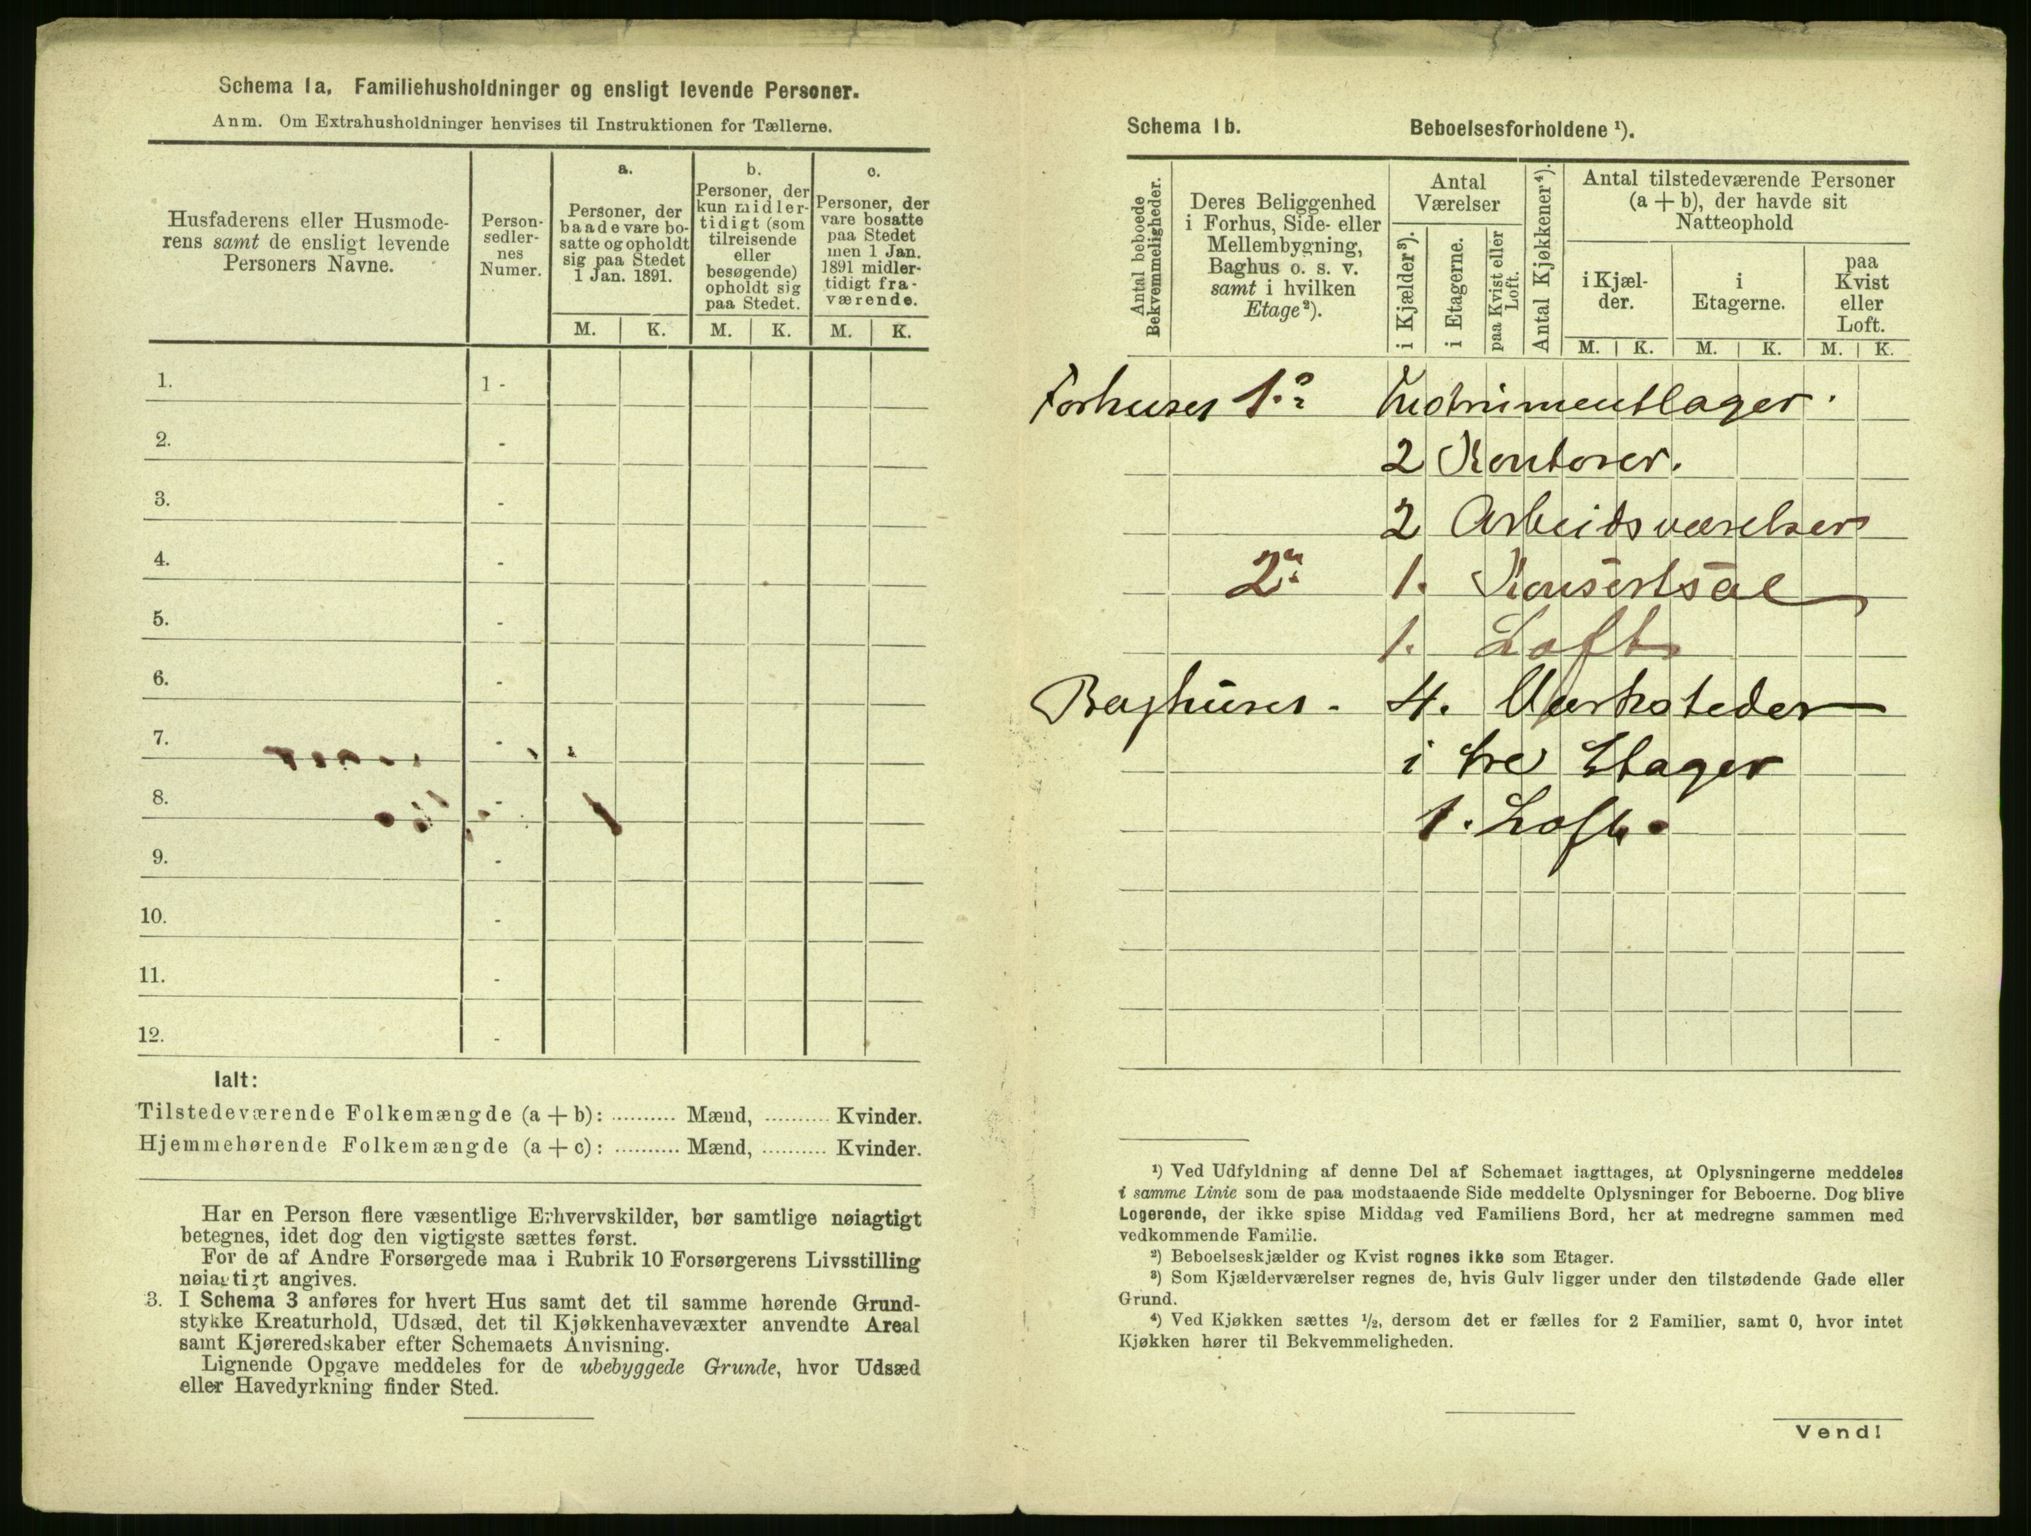 Schema 1a. Familiehusholdninger og ensligt levende Personer.
Anm. Om Extrahusholdninger henvises til Instruktionen for Tællerne.
Husfaderens eller Husmode-
rens samt de ensligt levende
Personers Navne.
Person-
sedler-
nes
Numer.
a.
Personer, der
baade vare bo-
satte og opholdt
sig paa Stedet
1 Jan. 1891.
b.
Personer, der
kun midler-
tidigt (som
tilreisende
eller
besøgende)
opholdt sig
paa Stedet.
c.
Personer, der
vare bosatte
paa Stedet
men 1 Jan.
1891 midler-
tidigt fra-
værende.
M. K. M. K. M. K.
1. 1 -
2. -
3. -
4. -
5. -
6. -
7. -
8. -
9. -
10. -
11. -
12. -
Ialt:
Tilstedeværende Folkemængde (a + b): .......... Mænd, .......... Kvinder.
Hjemmehørende Folkemængde (a + c): .......... Mænd, .......... Kvinder.
Har en Person flere væsentlige Erhvervskilder, bør samtlige nøiagtigt
betegnes, idet dog den vigtigste sættes først.
For de af Andre Forsørgede maa i Rubrik 10 Forsørgerens Livsstilling
nøiagtigt angives.
3. I Schema 3 anføres for hvert Hus samt det til samme hørende Grund-
stykke Kreaturhold, Udsæd, det til Kjøkkenhavevæxter anvendte Areal
samt Kjøreredskaber efter Schemaets Anvisning.
Lignende Opgave meddeles for de ubebyggede Grunde, hvor Udsæd
eller Havedyrkning finder Sted.
Schema 1b. Beboelsesforholdene ¹).
Antal beboede
Bekvemmeligheder.
Deres Beliggenhed
i Forhus, Side- eller
Mellembygning,
Baghus o. s. v.
samt i hvilken
Etage²).
Antal
Værelser
i Kjælder³).
i Etagerne.
paa Kvist eller
Loft.
Antal Kjøkkener⁴).
Antal tilstedeværende Personer
(a + b), der havde sit
Natteophold
i Kjæl-
der.
i
Etagerne.
paa
Kvist
eller
Loft.
M. K. M. K. M. K.
Forhuset 1. Instrumentlager.
2 Kontorer.
2 Arbeidsværelser
2 1. Konsertsal
1. Loft
Baghuset - 4. Værksteder
i tre Etager
1. Loft.
¹) Ved Udfyldning af denne Del af Schemaet iagttages, at Oplysningerne meddeles
i samme Linie som de paa modstaaende Side meddelte Oplysninger for Beboerne. Dog blive
Logerende, der ikke spise Middag ved Familiens Bord, her at medregne sammen med
vedkommende Familie.
²) Beboelseskjælder og Kvist regnes ikke som Etager.
³) Som Kjælderværelser regnes de, hvis Gulv ligger under den tilstødende Gade eller
Grund.
⁴) Ved Kjøkken sættes ½, dersom det er fælles for 2 Familier, samt 0, hvor intet
Kjøkken hører til Bekvemmeligheden.
Vend!